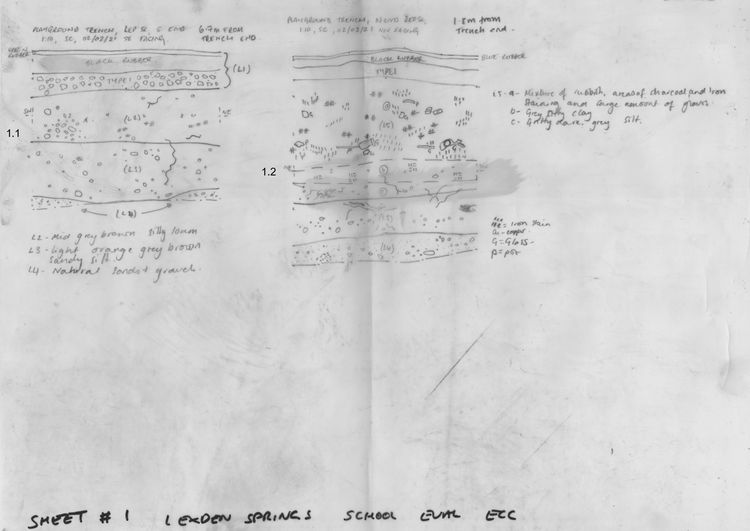 PLAYGROUND TRENCH, REP SE, S END 6.7m FROM
1:10, SC, 02/02/21 SE FACING TRENCH END
RUBBER
BLACK RUBBER
TYPE 1
(L1)
SW
NE
(L2)
1.1
(L3)
(L4)
L2 - Mid grey brown silty loam
L3 - light orange grey brown
sandy silt
L4 - Natural sands + gravel.
PLAYGROUND TRENCH, N END REP SE, 1.8m from
1:10, SC, 02/02/21 NW FACING Trench end.
BLACK RUBBER
BLUE RUBBER
TYPE 1
(L5)
1.2
(L4)
L5 - a - Mixture of rubbish, areas of charcoal and Iron
staining and large amount of glass.
b - Grey silty clay
c - Gritty dark grey silt.
= Iron stain
G = Glass
P = pot
SHEET # 1 LEXDEN SPRINGS SCHOOL EVAL ECC